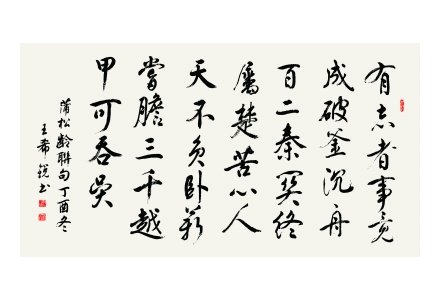 有志者事竟
成破釜沉舟
百二秦関终
屬楚苦心人
天不负卧薪
嘗膽三千越
甲可吞吴
蒲松龄联句丁酉冬
王希锐书